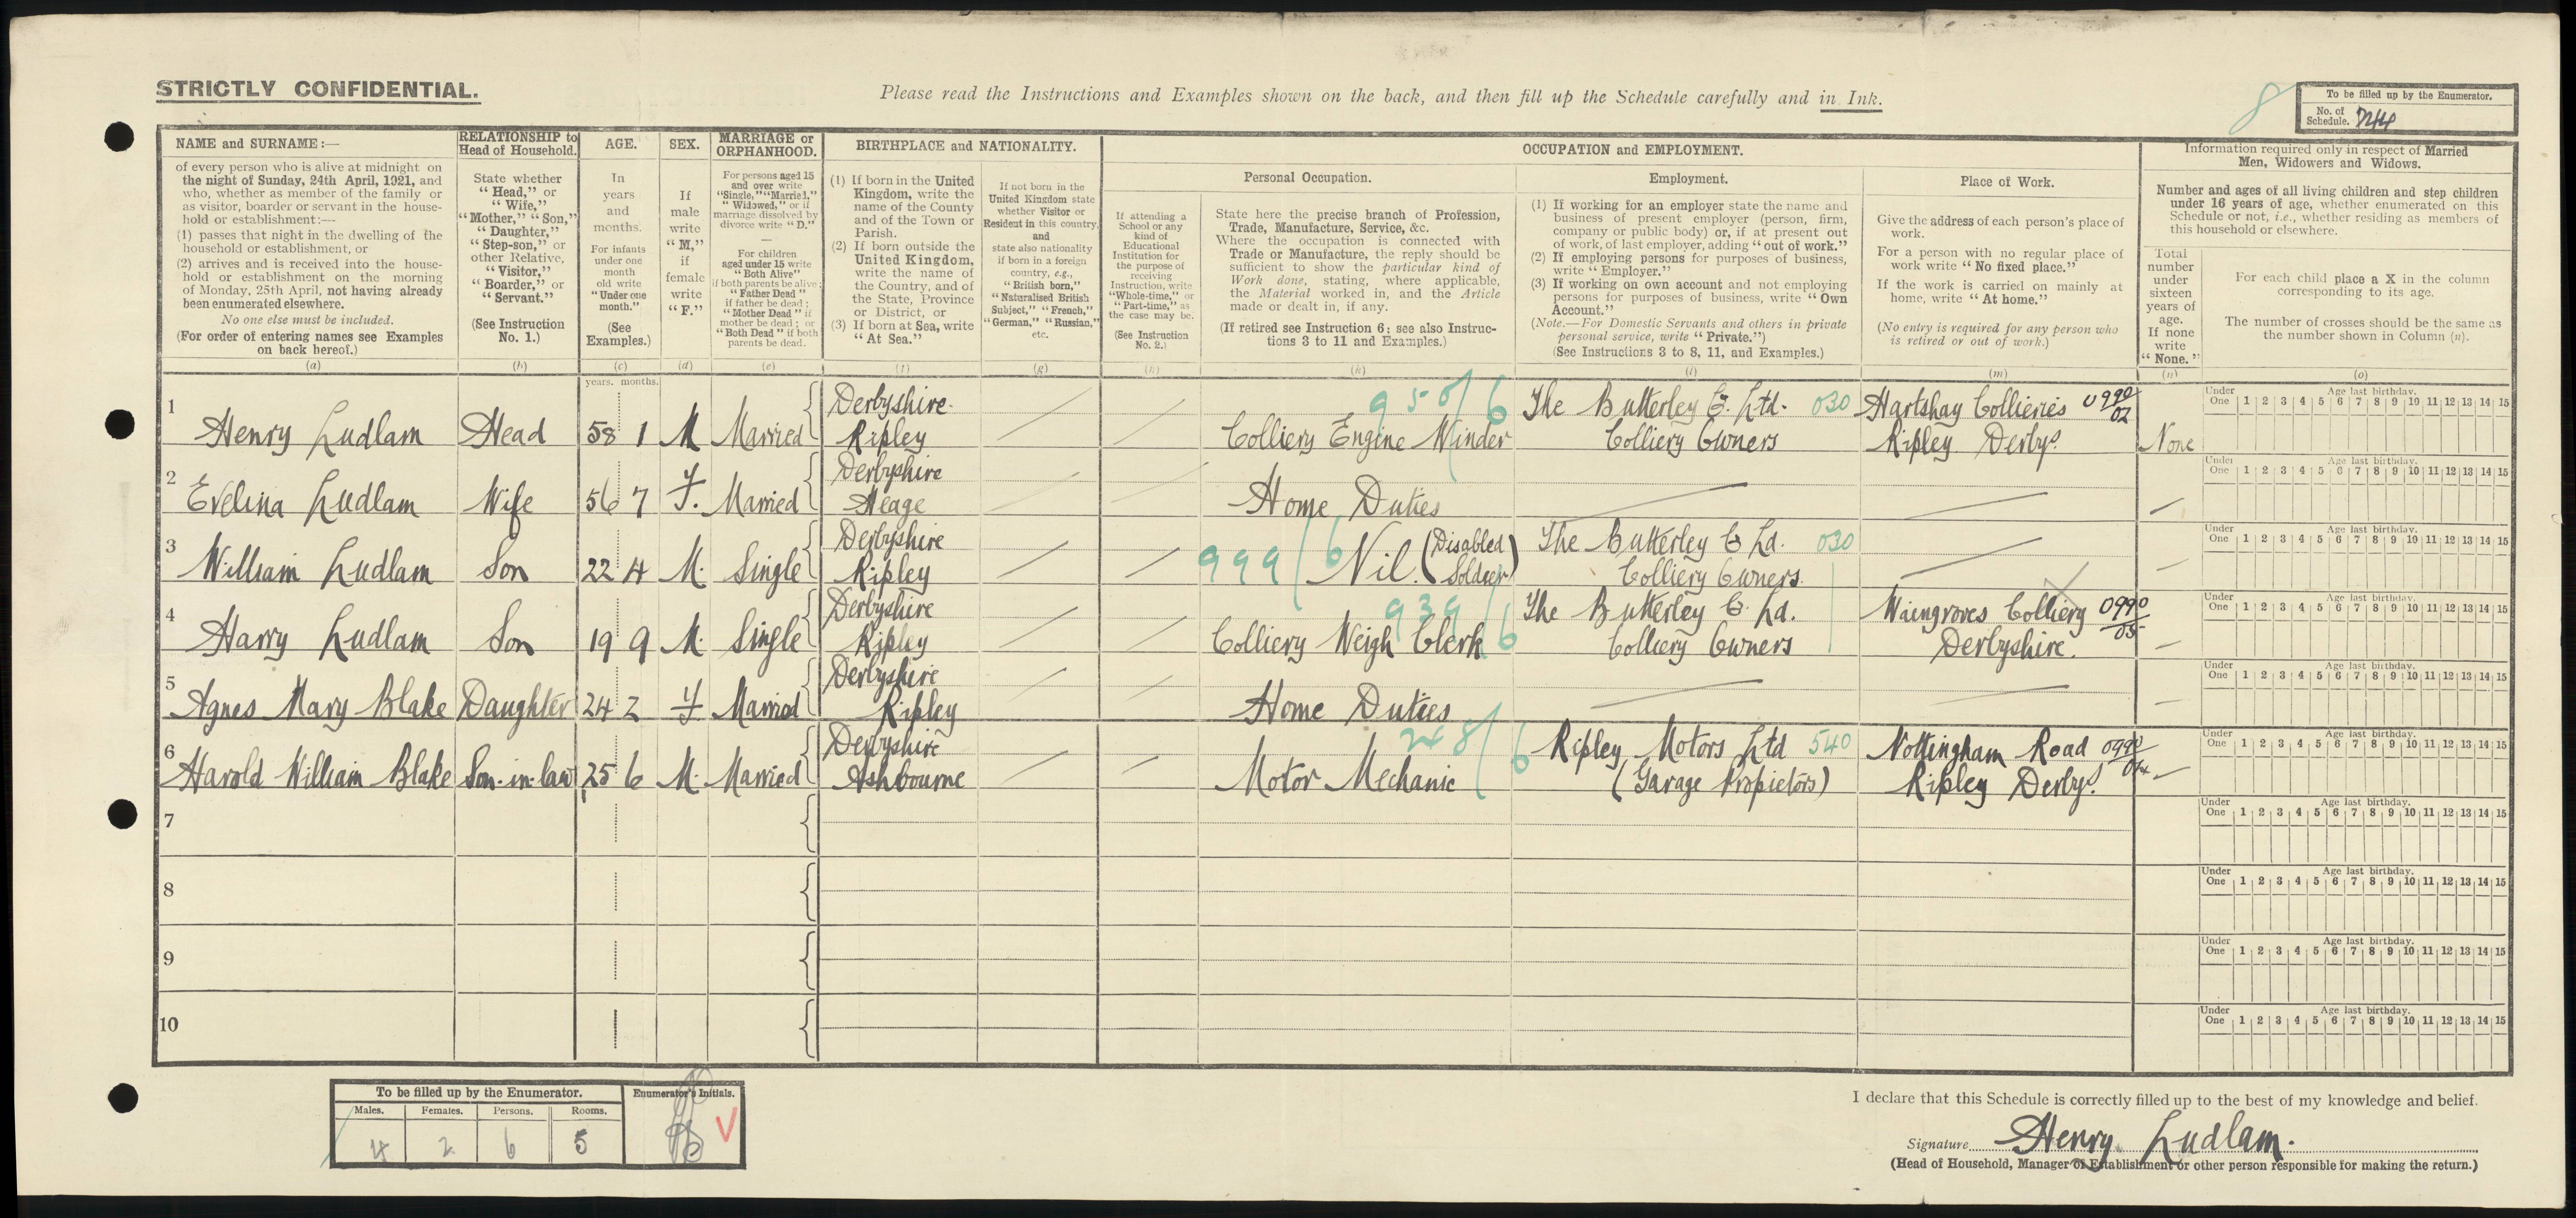 STRICTLY CONFIDENTIAL.
Please read the Instructions and Examples shown on the back, and then fill up the Schedule carefully and in Ink.
8
To be filled up by the Enumerator.
No. of Schedule. 244
NAME and SURNAME:—
of every person who is alive at midnight on
the night of Sunday, 24th April, 1921, and
who, whether as member of the family or
as visitor, boarder or servant in the house-
hold or establishment:—
(1) passes that night in the dwelling of the
household or establishment, or
(2) arrives and is received into the house-
hold or establishment on the morning
of Monday, 25th April, not having already
been enumerated elsewhere.
No one else must be included.
(For order of entering names see Examples
on back hereof.)
(a)
RELATIONSHIP to
Head of Household.
State whether
"Head," or
"Wife,"
"Mother," "Son,"
"Daughter,"
"Step-son," or
other Relative,
"Visitor,"
"Boarder," or
"Servant."
(See Instruction
No. 1.)
(b)
AGE.
In
years
and
months.
For infants
under one
month
old write
"Under one
month."
(See
Examples.)
(c)
SEX.
If
male
write
"M,"
if
female
write
"F."
(d)
MARRIAGE or
ORPHANHOOD.
For persons aged 15
and over write
"Single," "Married,"
"Widowed," or if
marriage dissolved by
divorce write "D."
—
For children
aged under 15 write
"Both Alive"
if both parents be alive;
"Father Dead"
if father be dead;
"Mother Dead" if
mother be dead; or
"Both Dead" if both
parents be dead.
(e)
BIRTHPLACE and NATIONALITY.
(1) If born in the United
Kingdom, write the
name of the County
and of the Town or
Parish.
(2) If born outside the
United Kingdom,
write the name of
the Country, and of
the State, Province
or District, or
(3) If born at Sea, write
"At Sea."
(f)
If not born in the
United Kingdom state
whether Visitor or
Resident in this country,
and
state also nationality
if born in a foreign
country, e.g.,
"British born,"
"Naturalised British
Subject," "French,"
"German," "Russian,"
etc.
(g)
OCCUPATION and EMPLOYMENT.
If attending a
School or any
kind of
Educational
Institution for
the purpose of
receiving
Instruction, write
"Whole-time," or
"Part-time," as
the case may be.
(See Instruction
No. 2.)
(h)
Personal Occupation.
State here the precise branch of Profession,
Trade, Manufacture, Service, &c.
Where the occupation is connected with
Trade or Manufacture, the reply should be
sufficient to show the particular kind of
Work done, stating, where applicable,
the Material worked in, and the Article
made or dealt in, if any.
(If retired see Instruction 6: see also Instruc-
tions 3 to 11 and Examples.)
(k)
Employment.
(1) If working for an employer state the name and
business of present employer (person, firm,
company or public body) or, if at present out
of work, of last employer, adding "out of work."
(2) If employing persons for purposes of business,
write "Employer."
(3) If working on own account and not employing
persons for purposes of business, write "Own
Account."
(Note.—For Domestic Servants and others in private
personal service, write "Private.")
(See Instructions 3 to 8, 11, and Examples.)
(l)
Place of Work.
Give the address of each person's place of
work.
For a person with no regular place of
work write "No fixed place."
If the work is carried on mainly at
home, write "At home."
(No entry is required for any person who
is retired or out of work.)
(m)
Information required only in respect of Married
Men, Widowers and Widows.
Number and ages of all living children and step children
under 16 years of age, whether enumerated on this
Schedule or not, i.e., whether residing as members of
this household or elsewhere.
Total
number
under
sixteen
years of
age.
If none
write
"None."
(n)
For each child place a X in the column
corresponding to its age.
The number of crosses should be the same as
the number shown in Column (n).
(o)
years. months.
1 Henry Ludlam Head 58 1 M Married Derbyshire Ripley Colliery Engine Winder 950/6 The Butterley Co. Ltd. 030 Colliery Owners Hartshay Collieries 0990/02 Ripley Derbys. None
Under One Age last birthday. 1 2 3 4 5 6 7 8 9 10 11 12 13 14 15
2 Evelina Ludlam Wife 56 7 F. Married Derbyshire Heage Home Duties
Under One Age last birthday. 1 2 3 4 5 6 7 8 9 10 11 12 13 14 15
3 William Ludlam Son 22 4 M. Single Derbyshire Ripley 999/6 Nil. (Disabled Soldier) The Butterley Co Ld. 030 Colliery Owners.
Under One Age last birthday. 1 2 3 4 5 6 7 8 9 10 11 12 13 14 15
4 Harry Ludlam Son 19 9 M. Single Derbyshire Ripley Colliery Weigh Clerk 939/6 The Butterley Co. Ld. Colliery Owners Waingroves Colliery 0990/05 Derbyshire.
Under One Age last birthday. 1 2 3 4 5 6 7 8 9 10 11 12 13 14 15
5 Agnes Mary Blake Daughter 24 2 F Married Derbyshire Ripley Home Duties
Under One Age last birthday. 1 2 3 4 5 6 7 8 9 10 11 12 13 14 15
6 Harold William Blake Son-in-law 25 6 M. Married Derbyshire Ashbourne Motor Mechanic Ripley Motors Ltd 540 (Garage Propietors) Nottingham Road 0990/04 Ripley Derbys.
Under One Age last birthday. 1 2 3 4 5 6 7 8 9 10 11 12 13 14 15
7
Under One Age last birthday. 1 2 3 4 5 6 7 8 9 10 11 12 13 14 15
8
Under One Age last birthday. 1 2 3 4 5 6 7 8 9 10 11 12 13 14 15
9
Under One Age last birthday. 1 2 3 4 5 6 7 8 9 10 11 12 13 14 15
10
Under One Age last birthday. 1 2 3 4 5 6 7 8 9 10 11 12 13 14 15
To be filled up by the Enumerator.
Males. Females. Persons. Rooms.
4 2 6 5
Enumerator's Initials.
I declare that this Schedule is correctly filled up to the best of my knowledge and belief.
Signature Henry Ludlam.
(Head of Household, Manager of Establishment or other person responsible for making the return.)